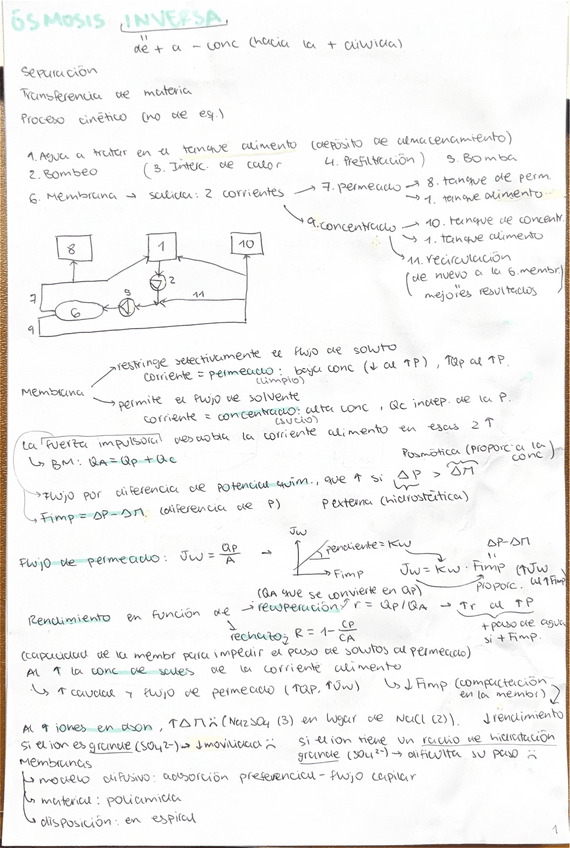 ÓSMOSIS INVERSA
de + a - conc (hacia la + diluida)
Separación
Transferencia de materia
Proceso cinético (no de eq.)
1. Agua a tratar en el tanque alimento (depósito de almacenamiento)
2. Bombeo (3. Interc. de calor 4. Prefiltración) 5. Bomba
6. Membrana → salida: 2 corrientes → 7. permeado → 8. tanque de perm.
→ 1. tanque alimento
→ 9. concentrado → 10. tanque de concentr.
→ 1. tanque alimento
→ 11. recirculación
(de nuevo a la 6. membr.)
mejores resultados
8 1 10
2
7 5 11
6
9
→ restringe selectivamente el flujo de soluto
corriente = permeado: baja conc (↓ al ↑P), ↑Qp al ↑P.
(limpio)
Membrana
→ permite el flujo de solvente
corriente = concentrado: alta conc, Qc indep. de la P.
(sucio)
La "fuerza impulsora" desdobla la corriente alimento en esas 2 ↑
↳ BM: QA = Qp + Qc
Posmótica (proporc. a la conc)
→ Flujo por diferencia de potencial quím., que ↑ si ΔP > ΔΠ
→ Fimp = ΔP - ΔΠ. (diferencia de P) P externa (hidrostática)
Flujo de permeado: Jw = Qp/A → Jw pendiente = Kw Fimp Jw = Kw · Fimp (↑Jw al ↑Fimp)
ΔP-ΔΠ
proporc.
(QA que se convierte en Qp)
Rendimiento en función de → recuperación: r = Qp/QA → ↑r al ↑P
+ paso de agua si + Fimp.
→ rechazo: R = 1 - Cp/CA
(capacidad de la membr para impedir el paso de solutos al permeado)
Al ↑ la conc de sales de la corriente alimento
↳ ↑ caudal y flujo de permeado (↑Qp, ↑Jw) ↳ ↓ Fimp (compactación en la membr)
↓ rendimiento
Al ↑ iones en dson, ↑ΔΠ :( (Na2SO4 (3) en lugar de NaCl (2)).
si el ion es grande (SO4²⁻) → ↓ movilidad :(
si el ion tiene un radio de hidratación grande (SO4²⁻) → dificulta su paso :(
Membranas
↳ modelo difusivo: adsorción preferencial - flujo capilar
↳ material: poliamida
↳ disposición: en espiral
1